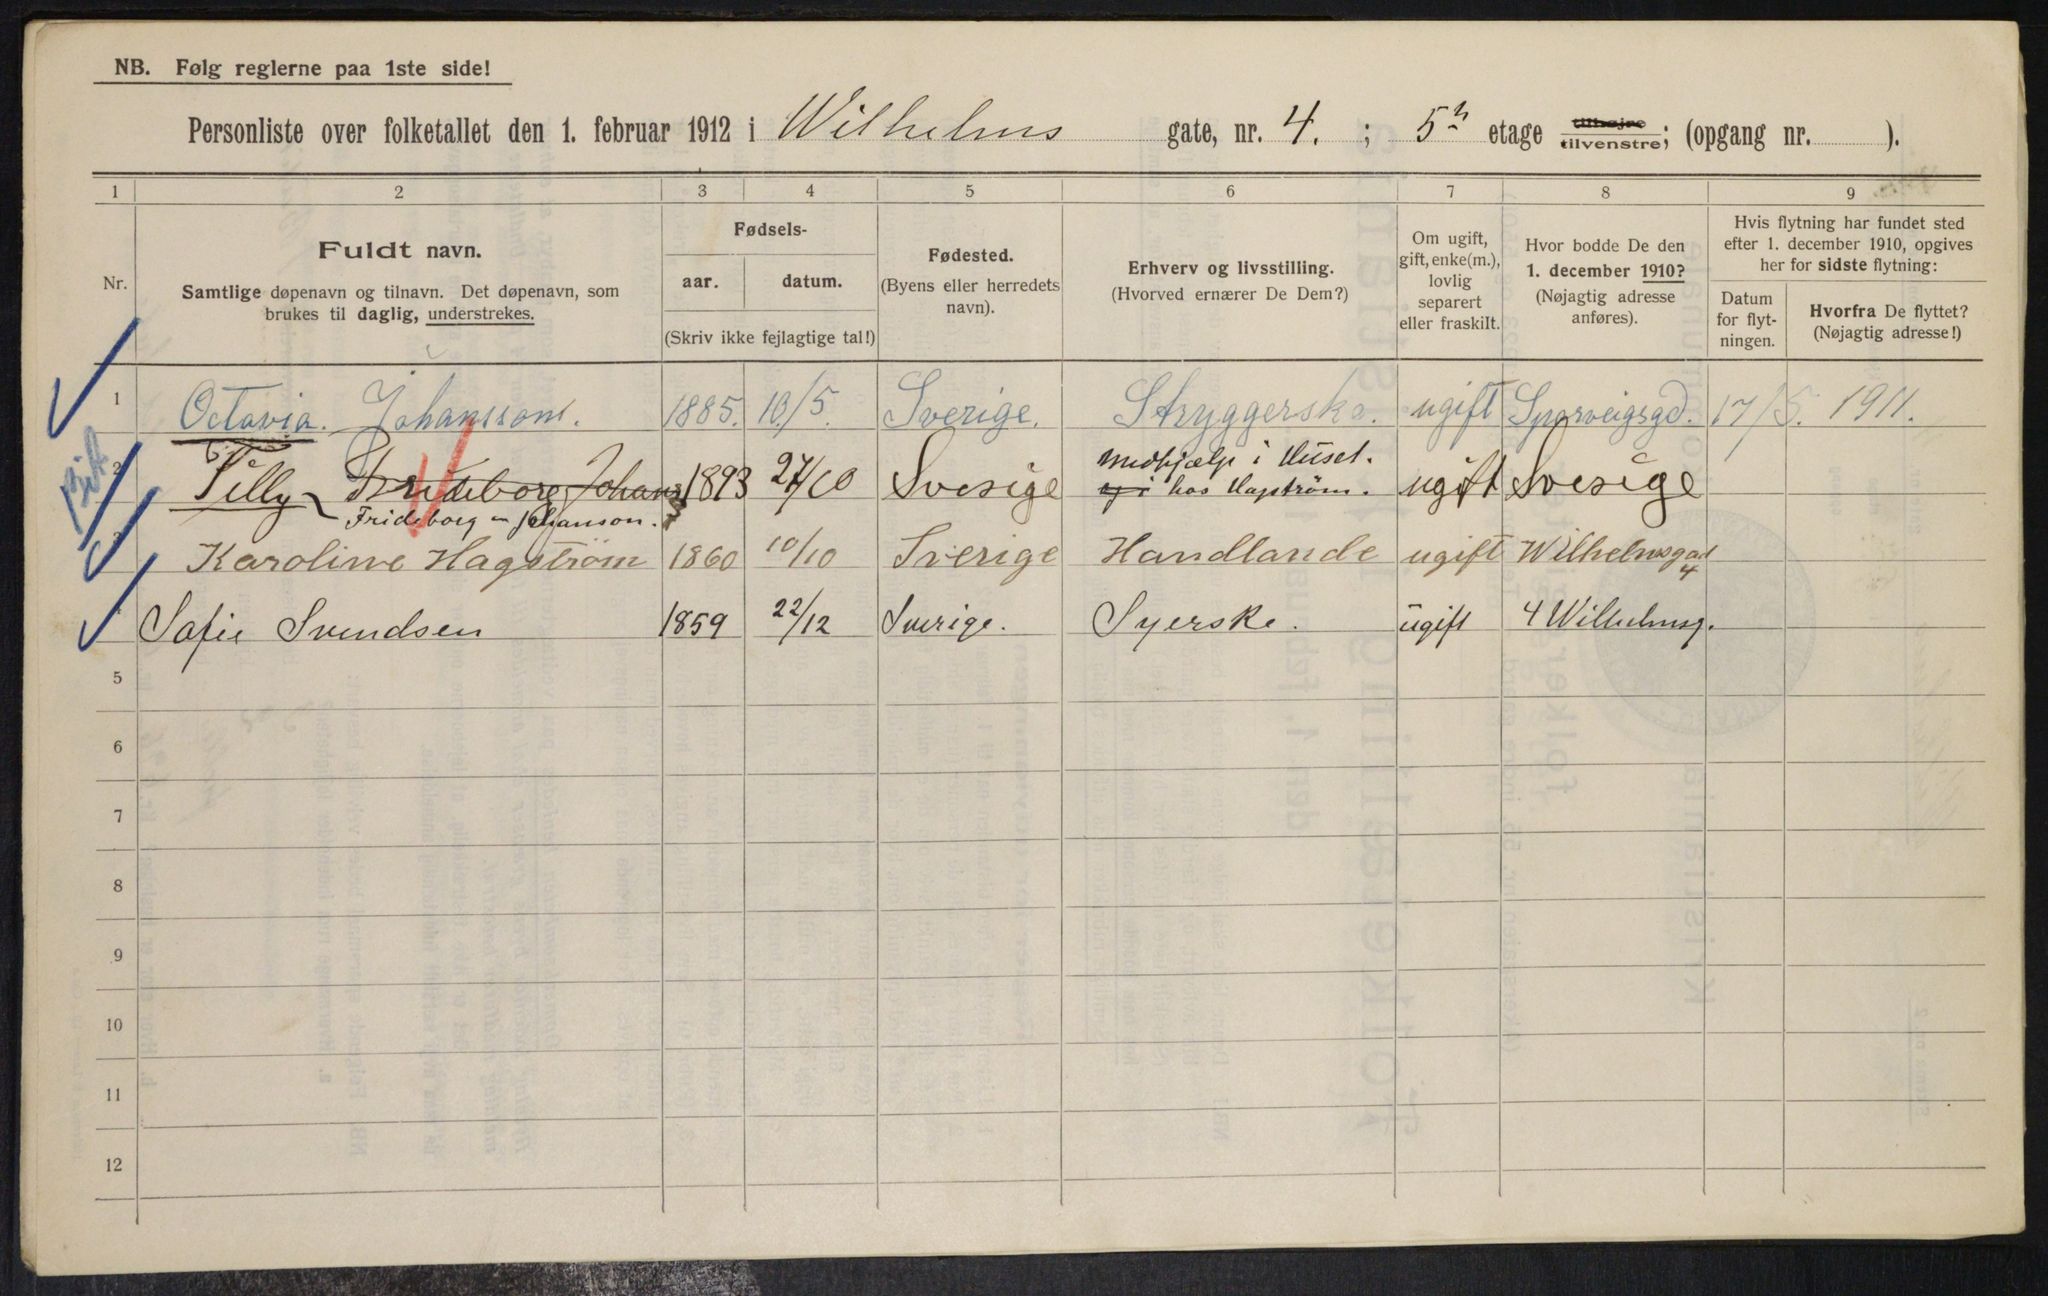 NB. Følg reglerne paa 1ste side!
Personliste over folketallet den 1. februar 1912 i Wilhelms gate, nr. 4. ; 5 etage tilhøjre tilvenstre; (opgang nr. ).
1 2 3 4 5 6 7 8 9
Nr.
Fuldt navn.
Samtlige døpenavn og tilnavn. Det døpenavn, som
brukes til daglig, understrekes.
Fødsels-
aar. datum.
(Skriv ikke fejlagtige tal!)
Fødested.
(Byens eller herredets
navn).
Erhverv og livsstilling.
(Hvorved ernærer De Dem?)
Om ugift,
gift, enke(m.),
lovlig
separert
eller fraskilt.
Hvor bodde De den
1. december 1910?
(Nøjagtig adresse
anføres).
Hvis flytning har fundet sted
efter 1. december 1910, opgives
her for sidste flytning:
Datum
for flyt-
ningen.
Hvorfra De flyttet?
(Nøjagtig adresse!)
1 Octavia. Johansson. 1885. 10/5. Sverige. Stryggerske. ugift Sporveigsgd. 17/5. 1911.
2 Tilly Frideborg Johans 1893 27/10 Sverige Medhjælp i Huset. ugift Sverige
hos Hagström.
Frideborg Johanson.
3 Karoline Hagström 1860 10/10 Sverige Handlande ugift Wilhelmsgad 4
4 Sofie Svendsen 1859 22/12 Sverige. Syerske. ugift 4 Wilhelmsg.
5
6
7
8
9
10
11
12